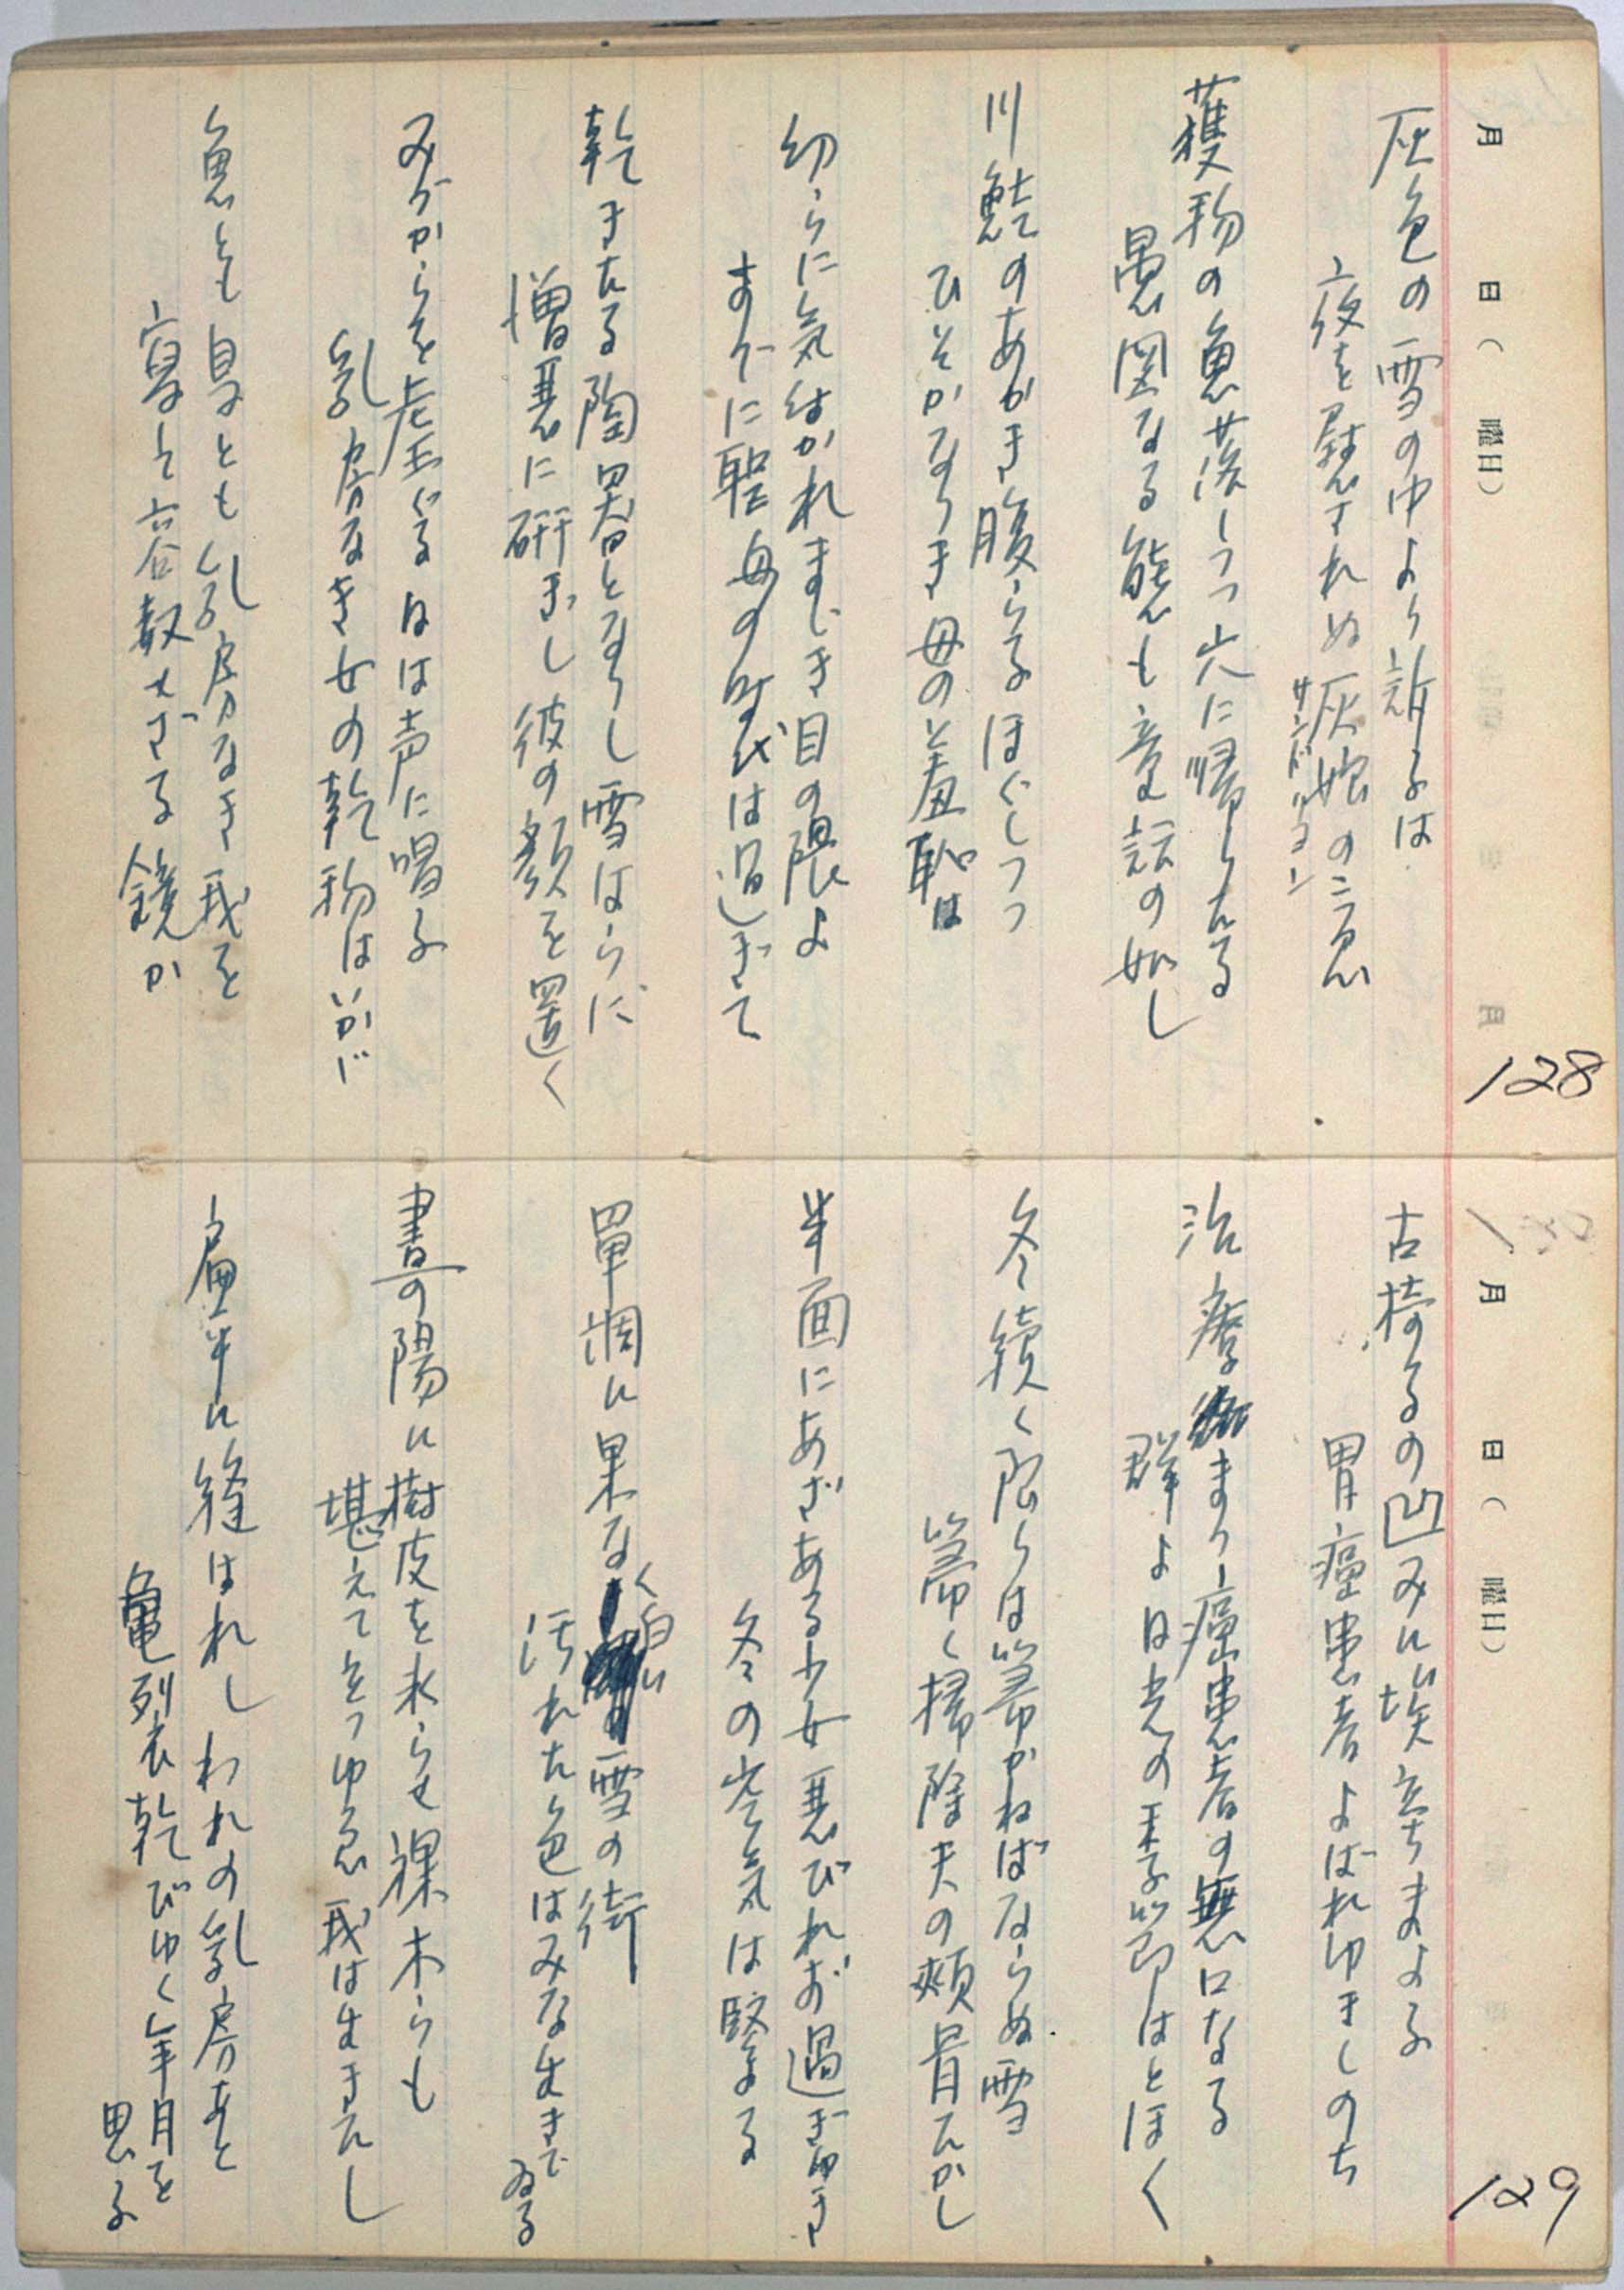 128
月 日( 曜日)
灰色の雪の中より訴ふるは
夜を慰されぬ灰娘のこゑ
サンドリヨン
獲物の魚落しつつ穴に帰りたる
愚図なる熊も童話の如し
川鮭のあかき腹子をほぐしつつ
ひそかなりき母の羞恥は
幼らに気付かれまじき目の隈よ
すでに聖母の時代は過ぎて
乾きたる陶器となりし雪はらに
憎悪に研ぎし彼の顔を置く
みづからを虐ぐる日は声に唱ふ
乳房なき女の乾物はいかが
魚とも鳥とも乳房なき我を
寫して容赦せざる鏡か
129
1月 日( 曜日)
古椅子の凹みに埃立ちまよふ
胃癌患者よばれゆきしのち
治療待ち癌患者の無口なる
群よ日光の季節はとほく
冬続く限りは箒かねばならぬ雪
箒く掃除夫の頬骨たかし
半面にあざある少女悪びれず過ぎゆき
冬の空気は緊まる
単調に果なく白い雪の街
汚れた色はみな生きてゐる
書の陽に樹皮を光らせ裸木らも
堪えてをつゆゑ我は生きたし
扁平に縫はれしわれの乳房あと
亀裂乾びゆく年月を
思ふ